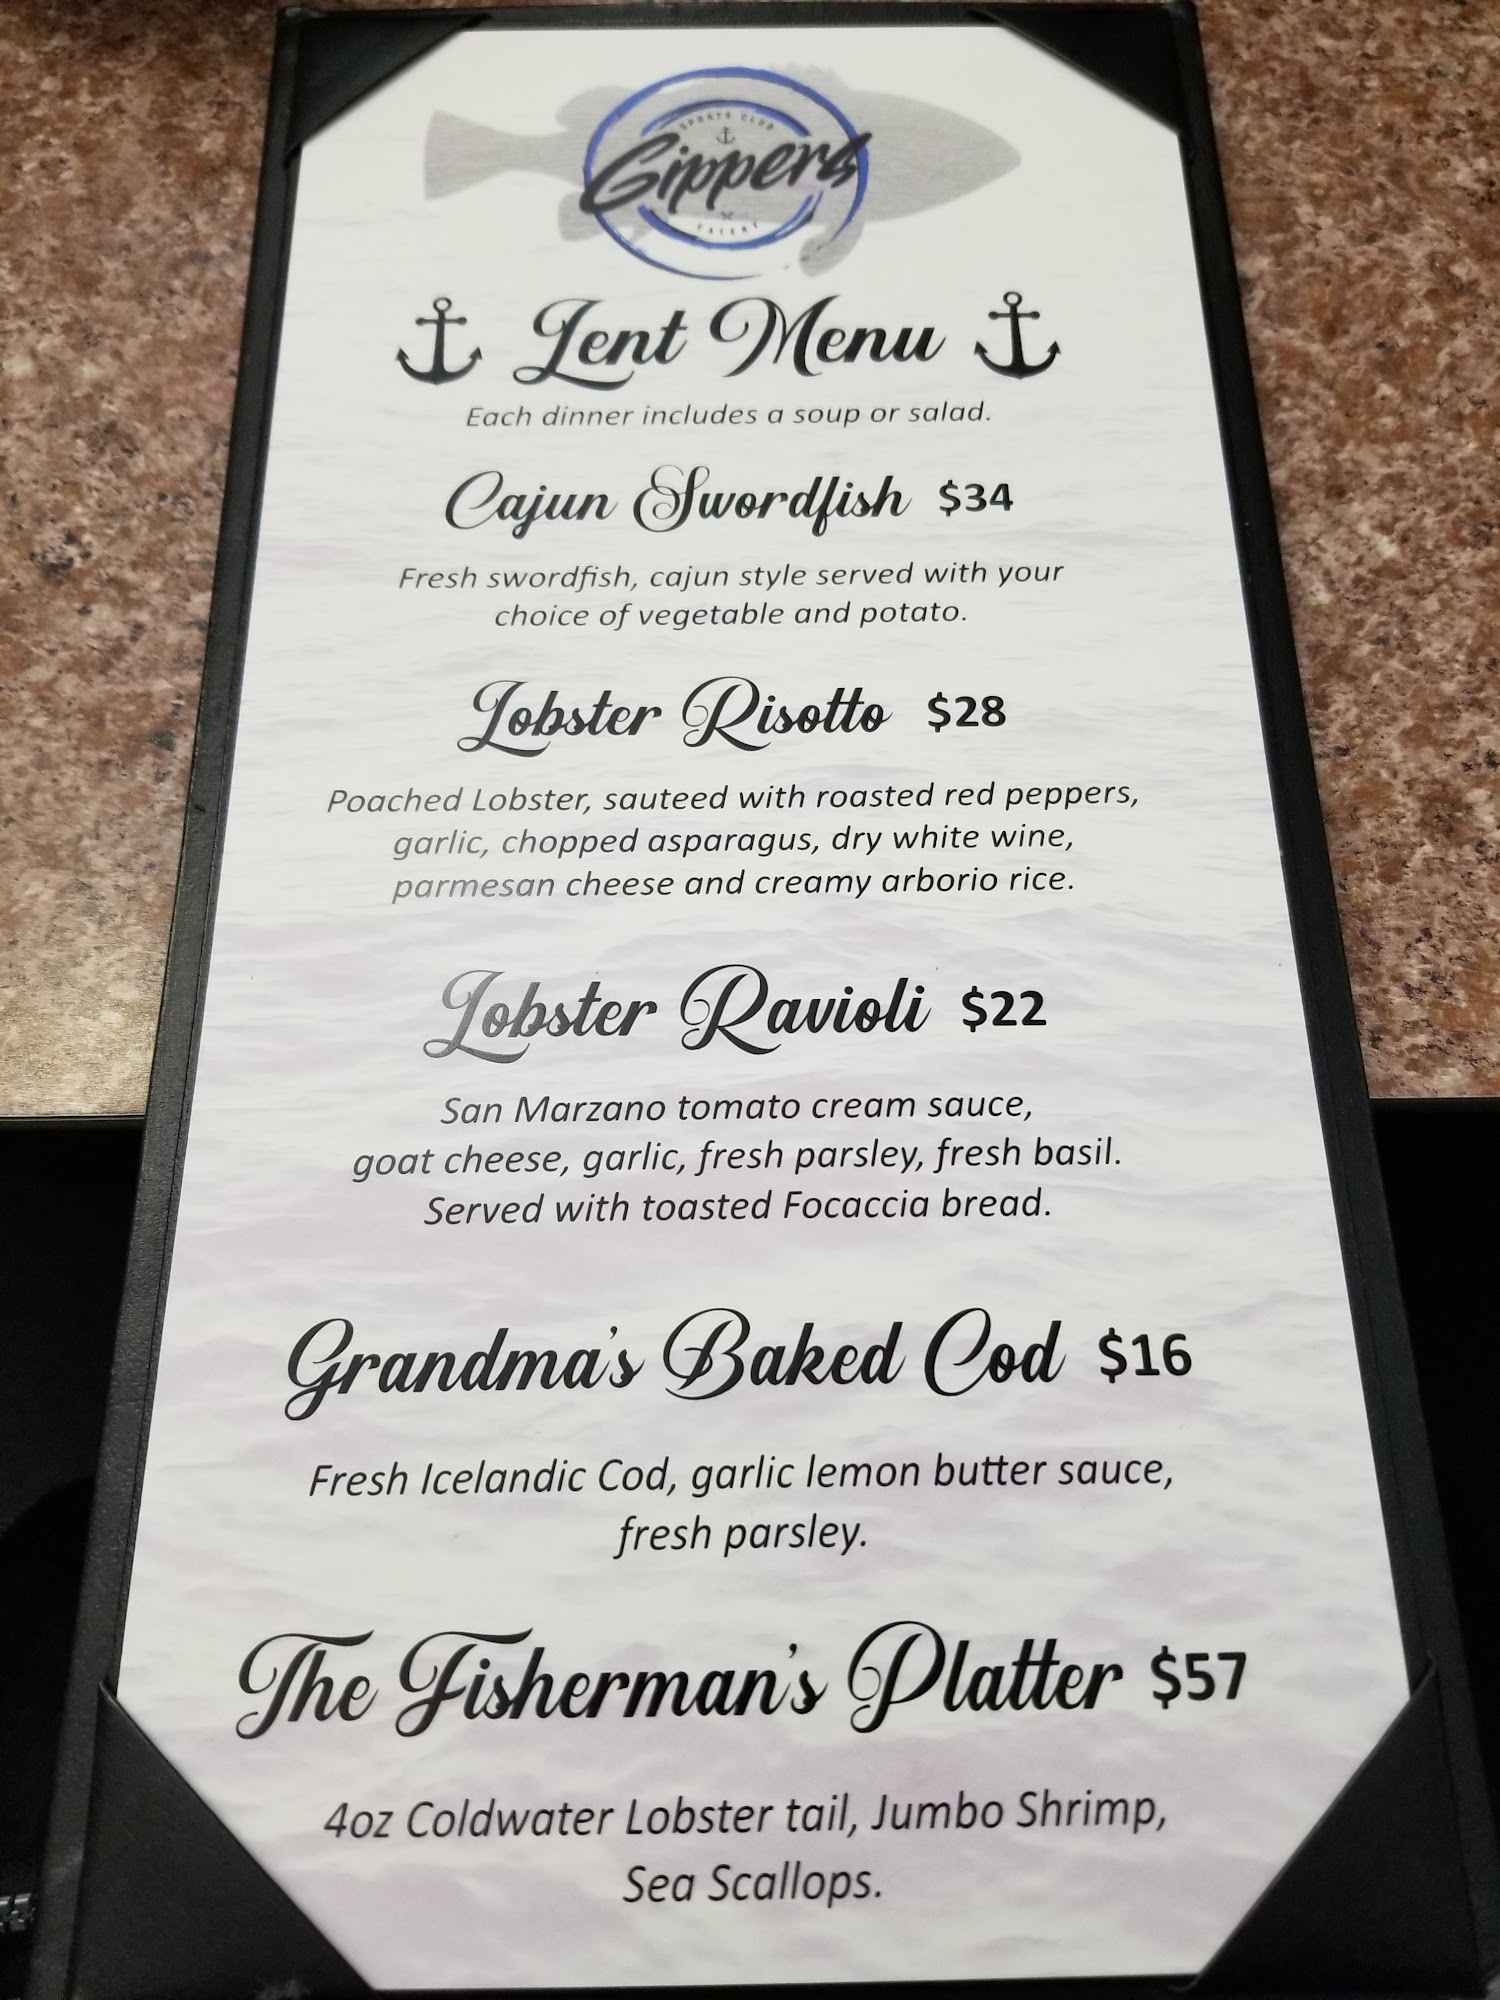 SPORTS CLUB
Gippers
EATERY
Lent Menu
Each dinner includes a soup or salad.
Cajun Swordfish $34
Fresh swordfish, cajun style served with your
choice of vegetable and potato.
Lobster Risotto $28
Poached Lobster, sauteed with roasted red peppers,
garlic, chopped asparagus, dry white wine,
parmesan cheese and creamy arborio rice.
Lobster Ravioli $22
San Marzano tomato cream sauce,
goat cheese, garlic, fresh parsley, fresh basil.
Served with toasted Focaccia bread.
Grandma's Baked Cod $16
Fresh Icelandic Cod, garlic lemon butter sauce,
fresh parsley.
The Fisherman's Platter $57
4oz Coldwater Lobster tail, Jumbo Shrimp,
Sea Scallops.